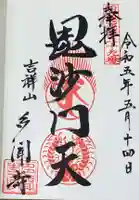 奉拝
令和五年五月十四日
毘沙門天
吉祥山
多聞寺